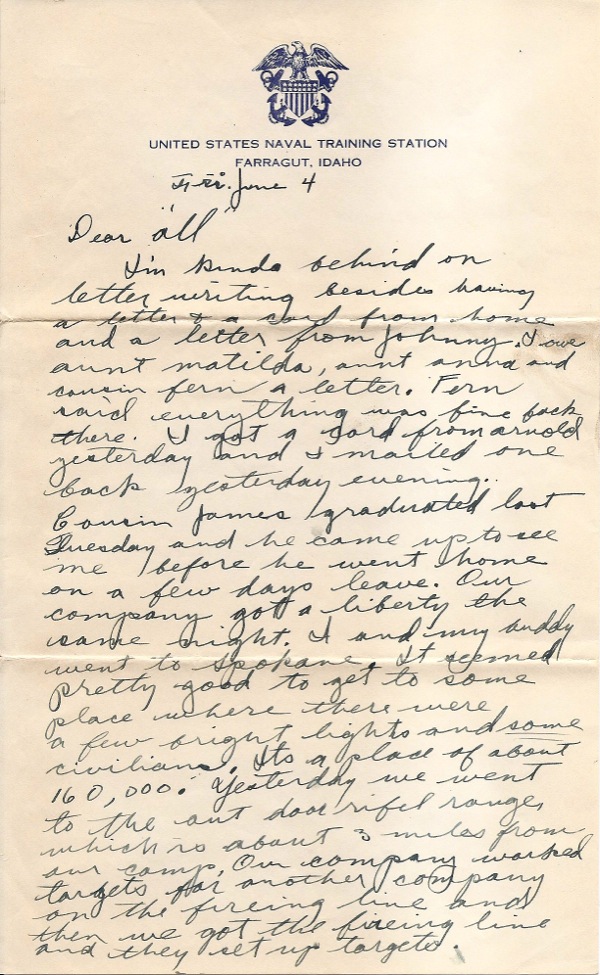 UNITED STATES NAVAL TRAINING STATION
FARRAGUT, IDAHO
Fri. June 4
Dear "all"
I'm kinda behind on
letter writing besides having
a letter & a card from home
and a letter from Johnny. I owe
aunt matilda, aunt anna and
cousin fern a letter. Fern
said everything was fine back
there. I got a card from arnold
yesterday and I mailed one
back yesterday evening.
Cousin James graduated last
Tuesday and he came up to see
me before he went home
on a few days leave. Our
company got a liberty the
same night. I and my buddy
went to Spokane. It seemed
pretty good to get to some
place where there were
a few bright lights and some
civilians. Its a place of about
160,000. Yesterday we went
to the out door rifel range,
which is about 3 miles from
our camp. Our company worked
targets for another company
on the fireing line and
then we got the fireing line
and they set up targets.